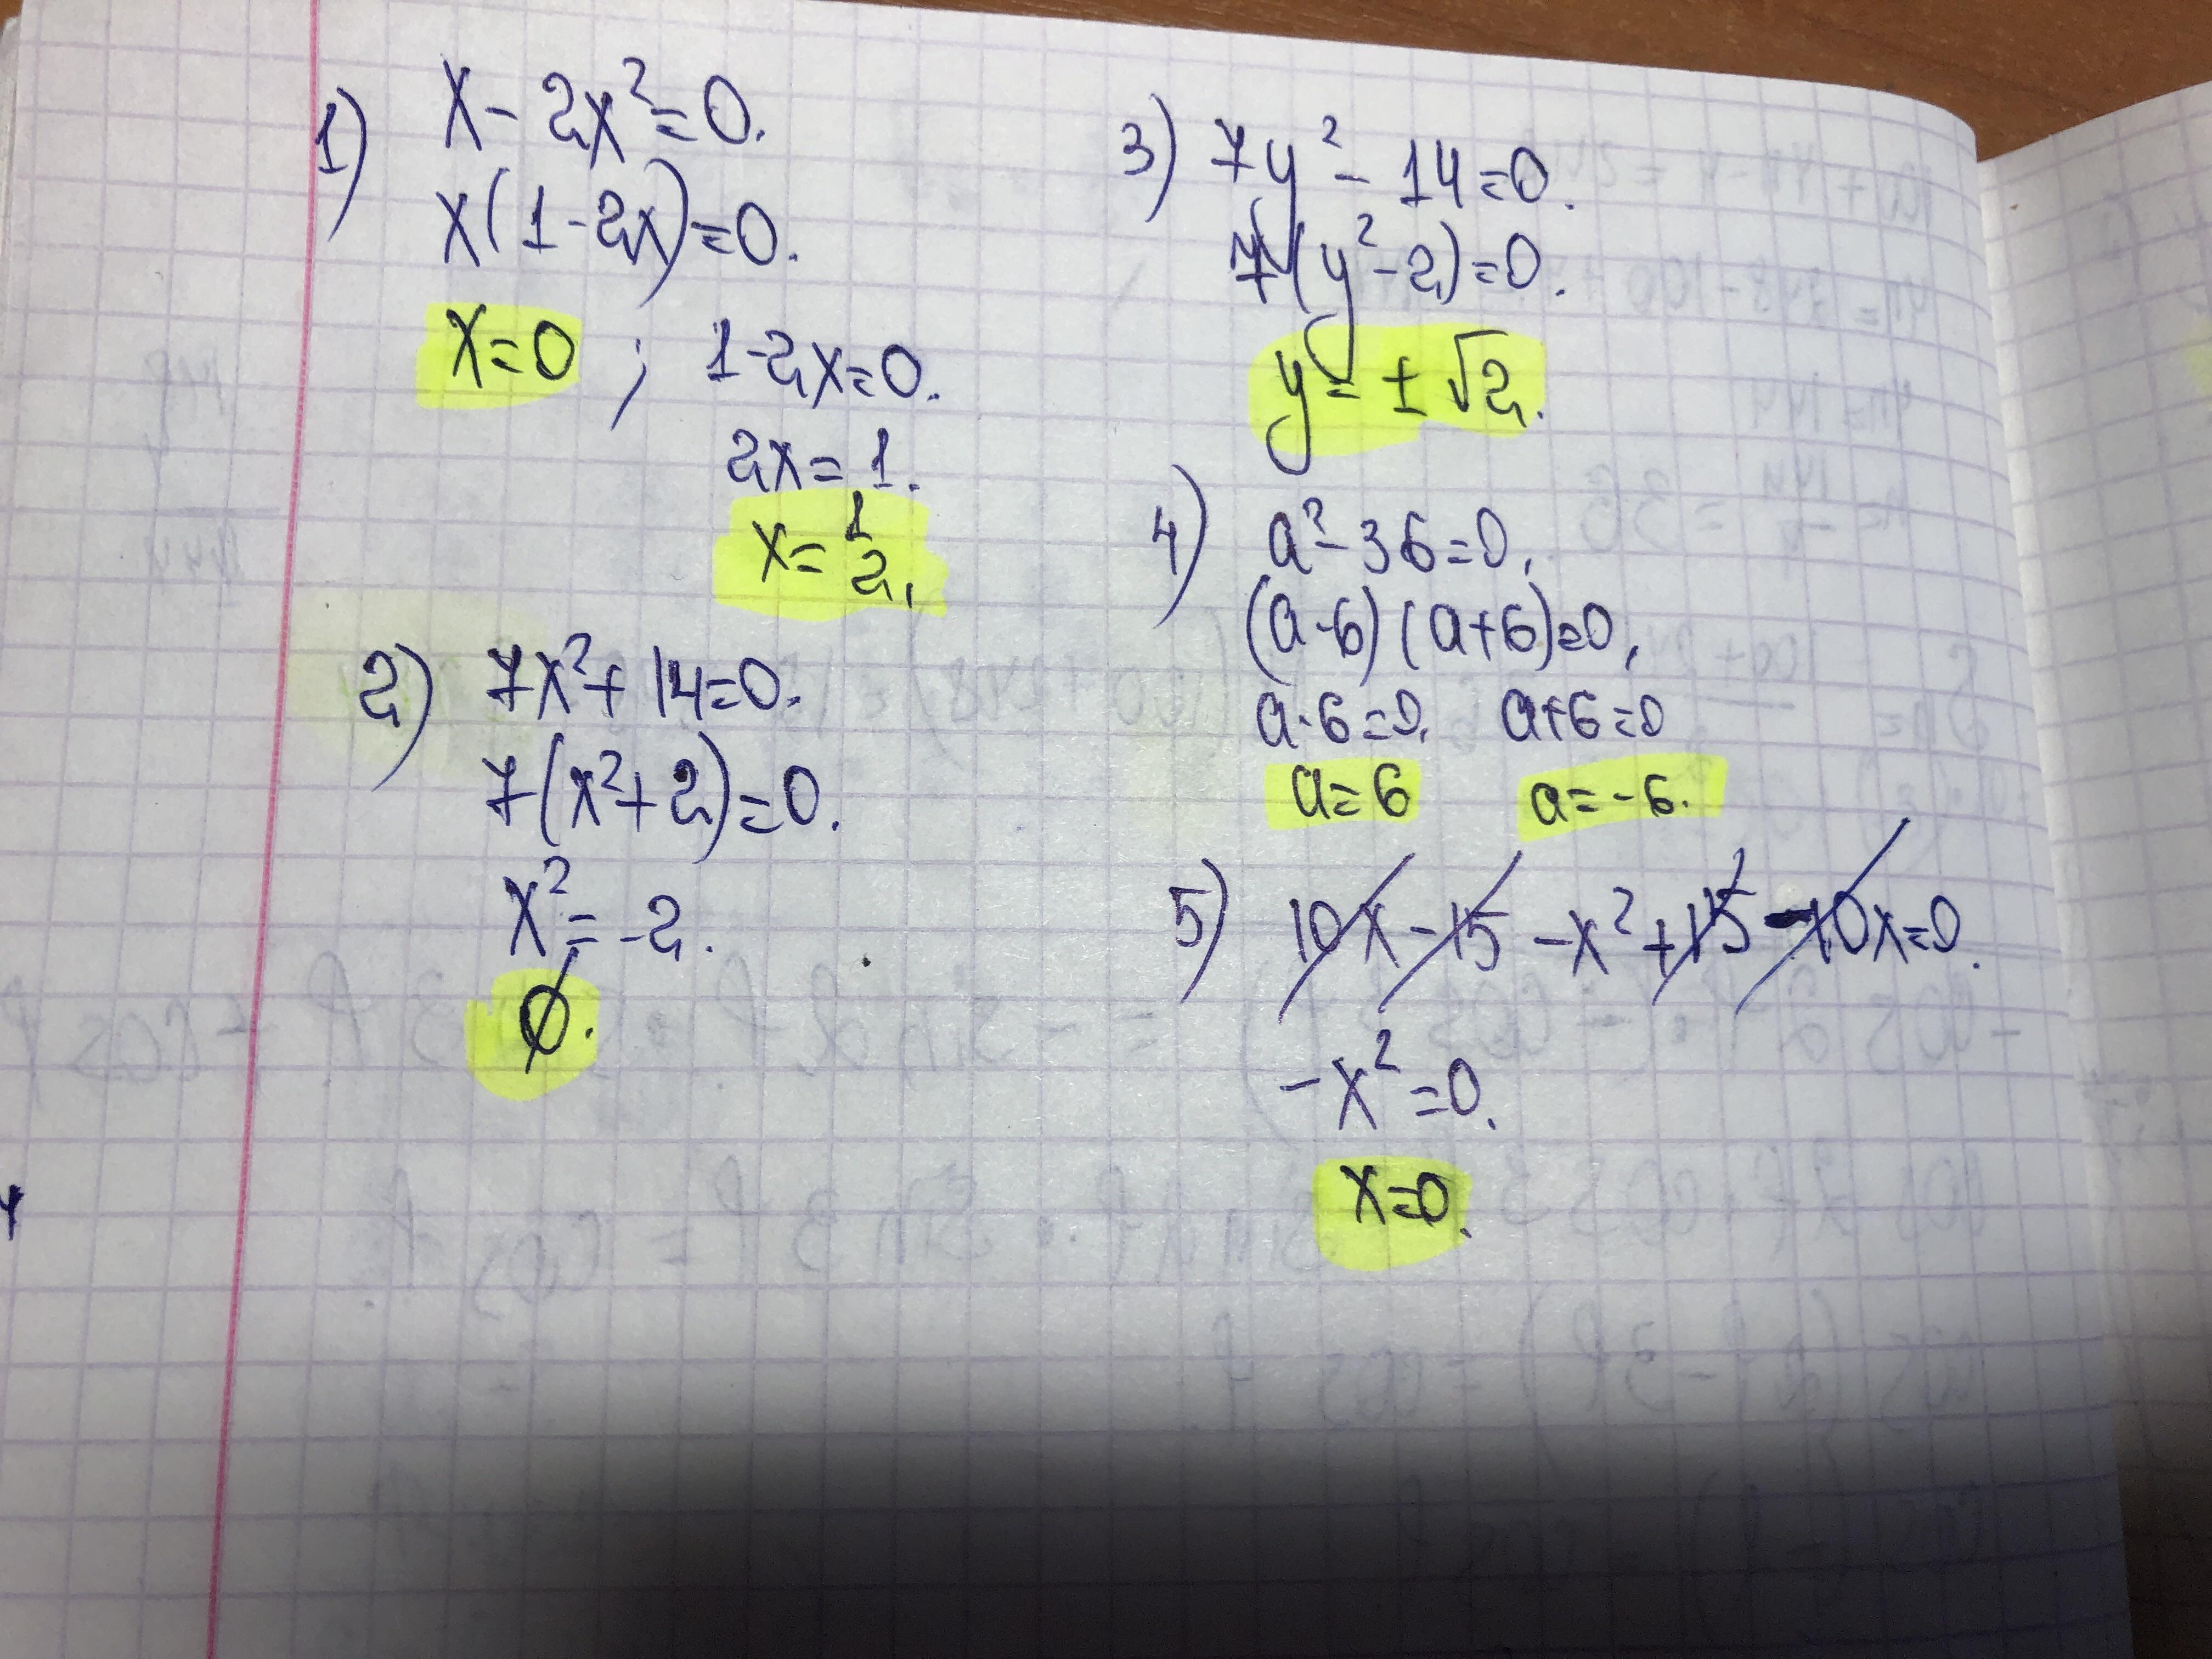 1) x - 2x² = 0.
x(1 - 2x) = 0.
x = 0 ; 1 - 2x = 0.
2x = 1.
x = 1/2.
2) 7x² + 14 = 0.
7(x² + 2) = 0.
x² = -2.
∅.
3) 7y² - 14 = 0.
7(y² - 2) = 0.
y = ± √2.
4) a² - 36 = 0.
(a - 6)(a + 6) = 0.
a - 6 = 0. a + 6 = 0
a = 6 a = -6.
5) 10x - 15 - x² + 15 - 10x = 0.
-x² = 0.
x = 0.